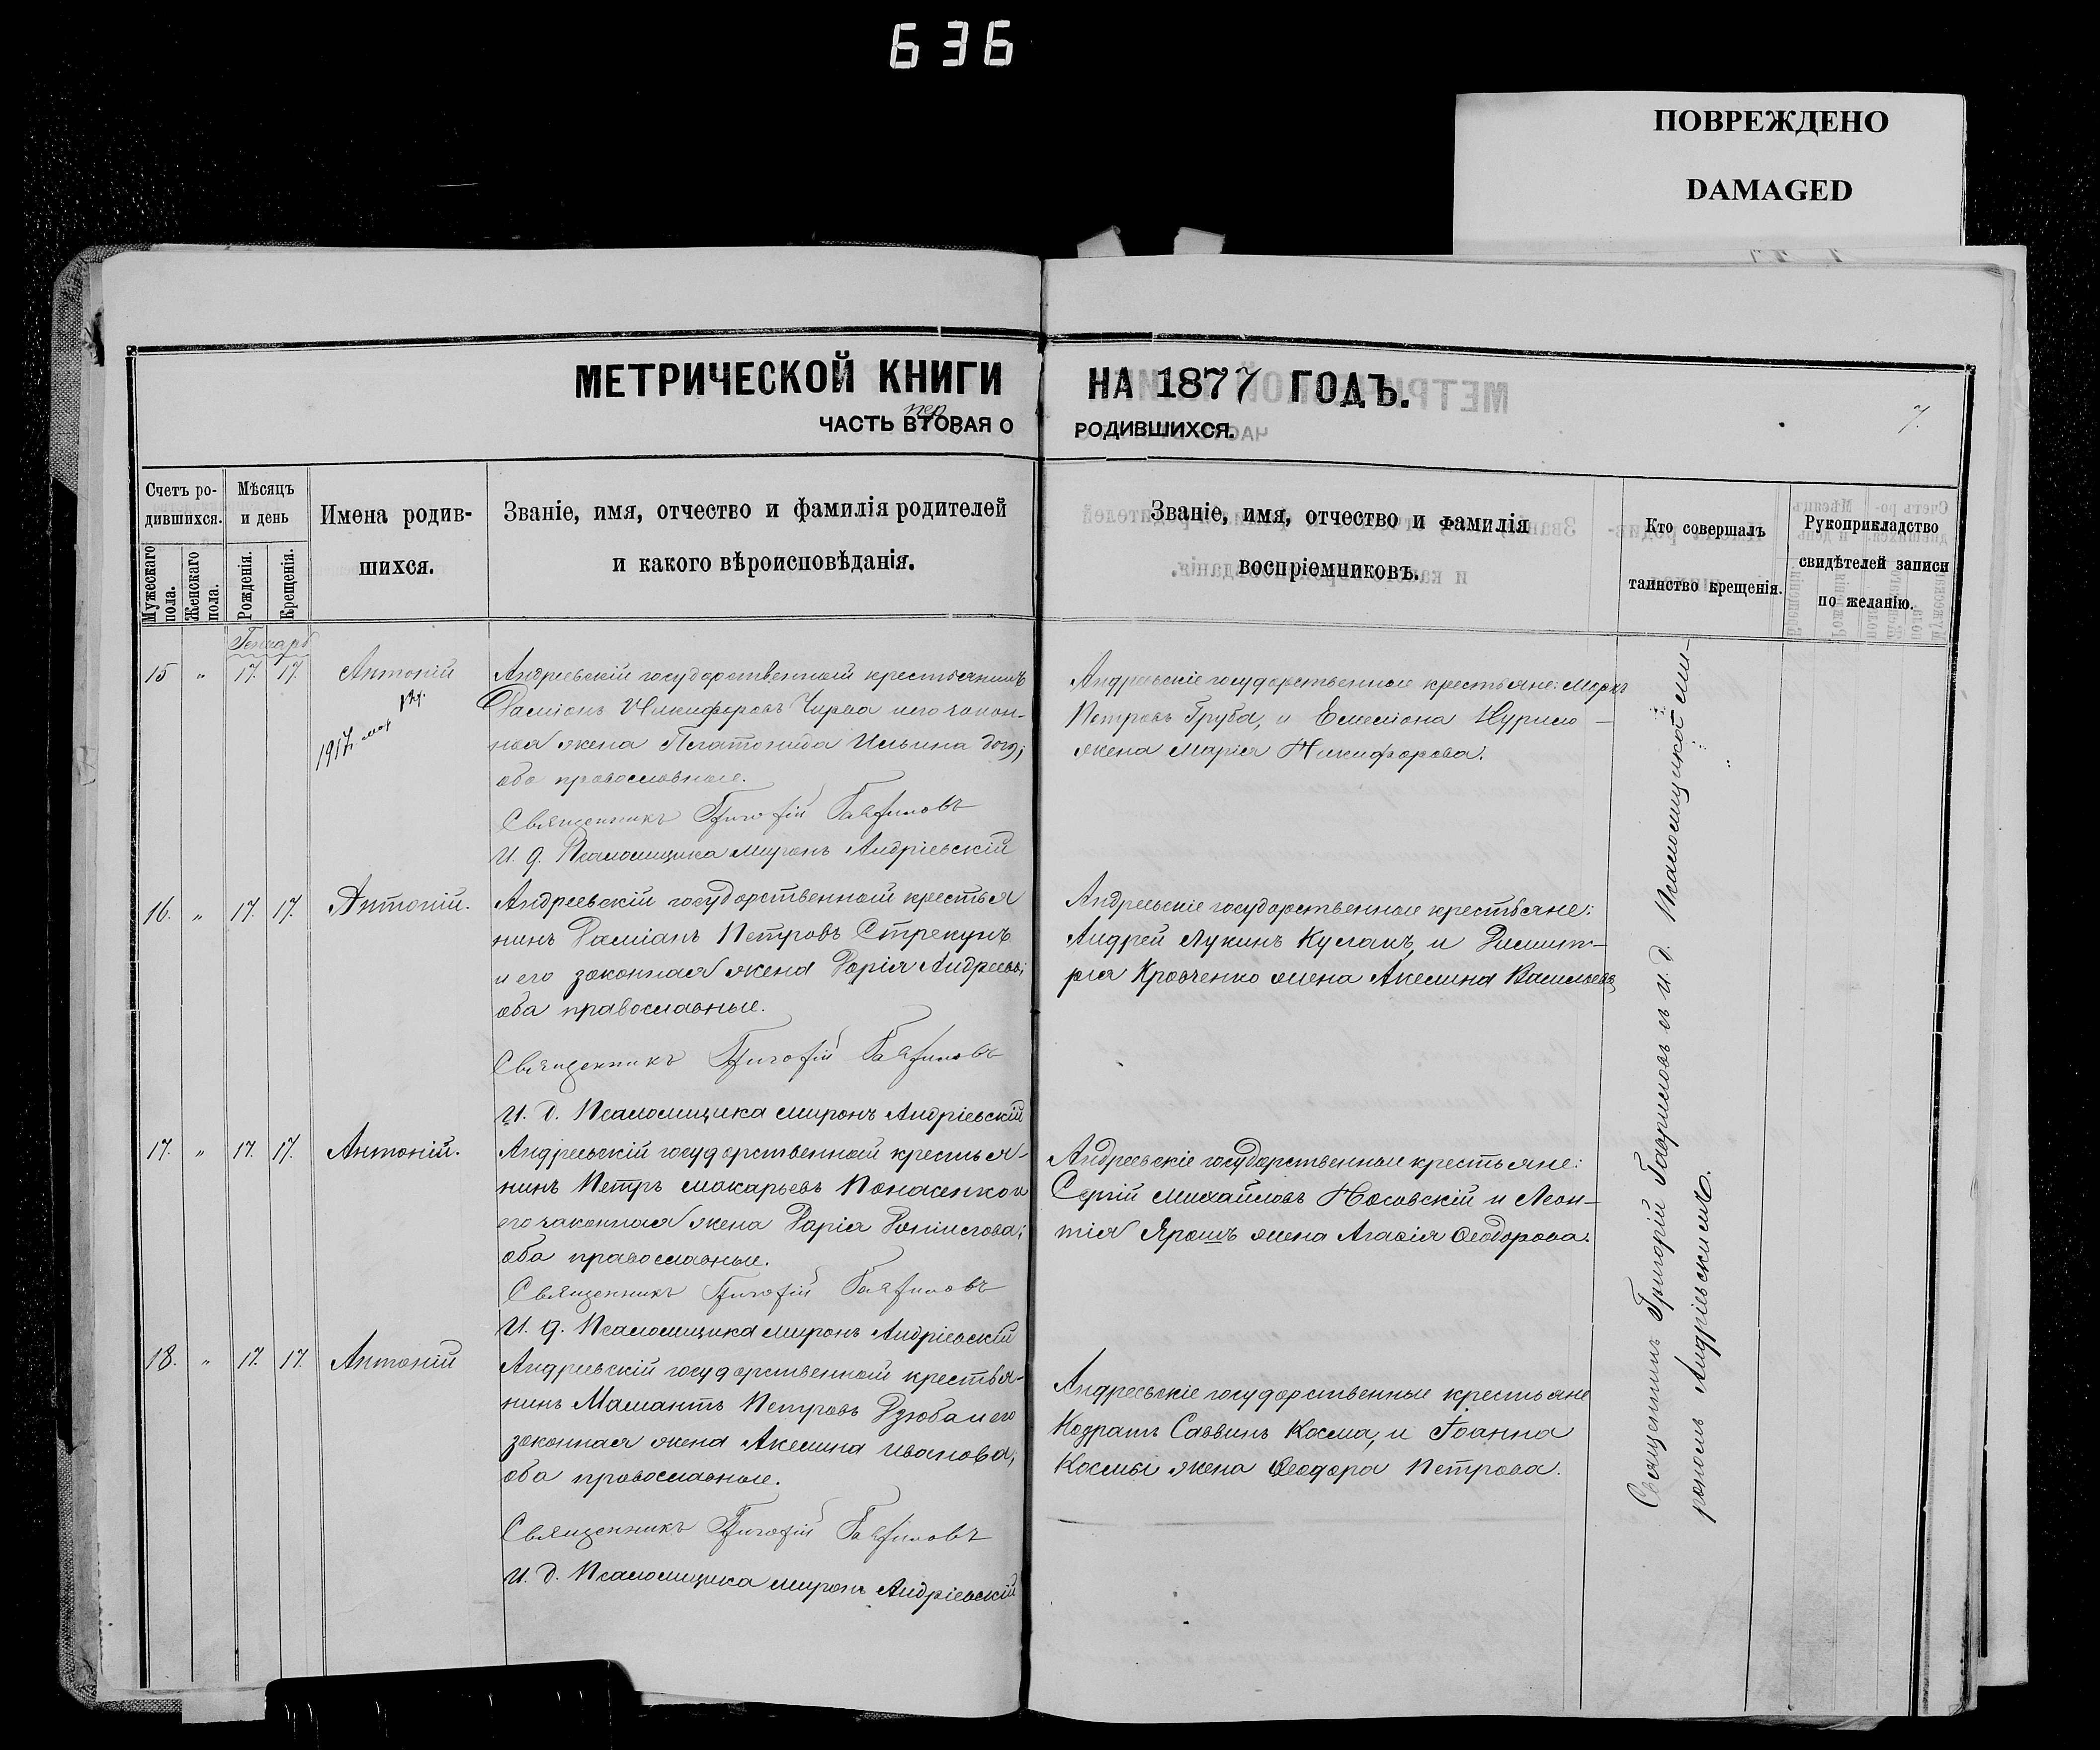 636
ПОВРЕЖДЕНО
DAMAGED
МЕТРИЧЕСКОЙ КНИГИ НА 1877 ГОДЪ.
ЧАСТЬ ВТОРАЯ О РОДИВШИХСЯ.
пер
7.
Счетъ родившихся.
Мужескаго пола.
Женскаго пола.
Мѣсяцъ и день
Рожденія.
Крещенія.
Имена родив-
шихся.
Званіе, имя, отчество и фамилія родителей
и какого вѣроисповѣданія.
Званіе, имя, отчество и фамилія
воспріемниковъ.
Кто совершалъ
таинство крещенія.
Рукоприкладство
свидѣтелей записи
по желанію.
15 " 17. 17. Антоній
1917
Андреевскій государственный крестьянинъ
Даміанъ Никифоровъ Чирва и его закон-
ная жена Платонида Ильина дочь;
оба православные.
Священникъ Григорій Гавриловъ
И. д. Псаломщика Миронъ Андріевскій
Андреевскіе государственные крестьяне: Маркъ
Петровъ Груба, и Емеліана
жена Марія Никифорова.
16. " 17. 17. Антоній.
Андреевскій государственный крестья
нинъ Даміанъ Петровъ Стрекунъ
и его законная жена Дарія Андреева;
оба православные.
Священникъ Григорій Гавриловъ
И. д. Псаломщика Миронъ Андріевскій
Андреевскіе государственные крестьяне:
Андрей Лукинъ Кулакъ, и Димит-
рія Кравченко жена Акелина Васильева
17. " 17. 17. Антоній.
Андреевскій государственный крестья-
нинъ Петръ Макарьевъ Понасенко и
его законная жена Дарія Даніилова;
оба православные.
Священникъ Григорій Гавриловъ
И. д. Псаломщика Миронъ Андріевскій
Андреевскіе государственные крестьяне:
Сергій Михайловъ Носовскій и Леон-
тія Ярошъ жена Агафія Ѳеодорова.
18. " 17. 17. Антоній
Андреевскій государственный крестья-
нинъ Петровъ Дзюба и его
законная жена Акелина Иванова;
оба православные.
Священникъ Григорій Гавриловъ
И. д. Псаломщика Миронъ Андріевскій
Андреевскіе государственные крестьяне
Кодратъ Саввинъ Косма, и Іоанна
Космы жена Ѳеодора Петрова.
Священникъ Григорій Гавриловъ съ и. д. Псаломщикомъ Ми-
рономъ Андріевскимъ.